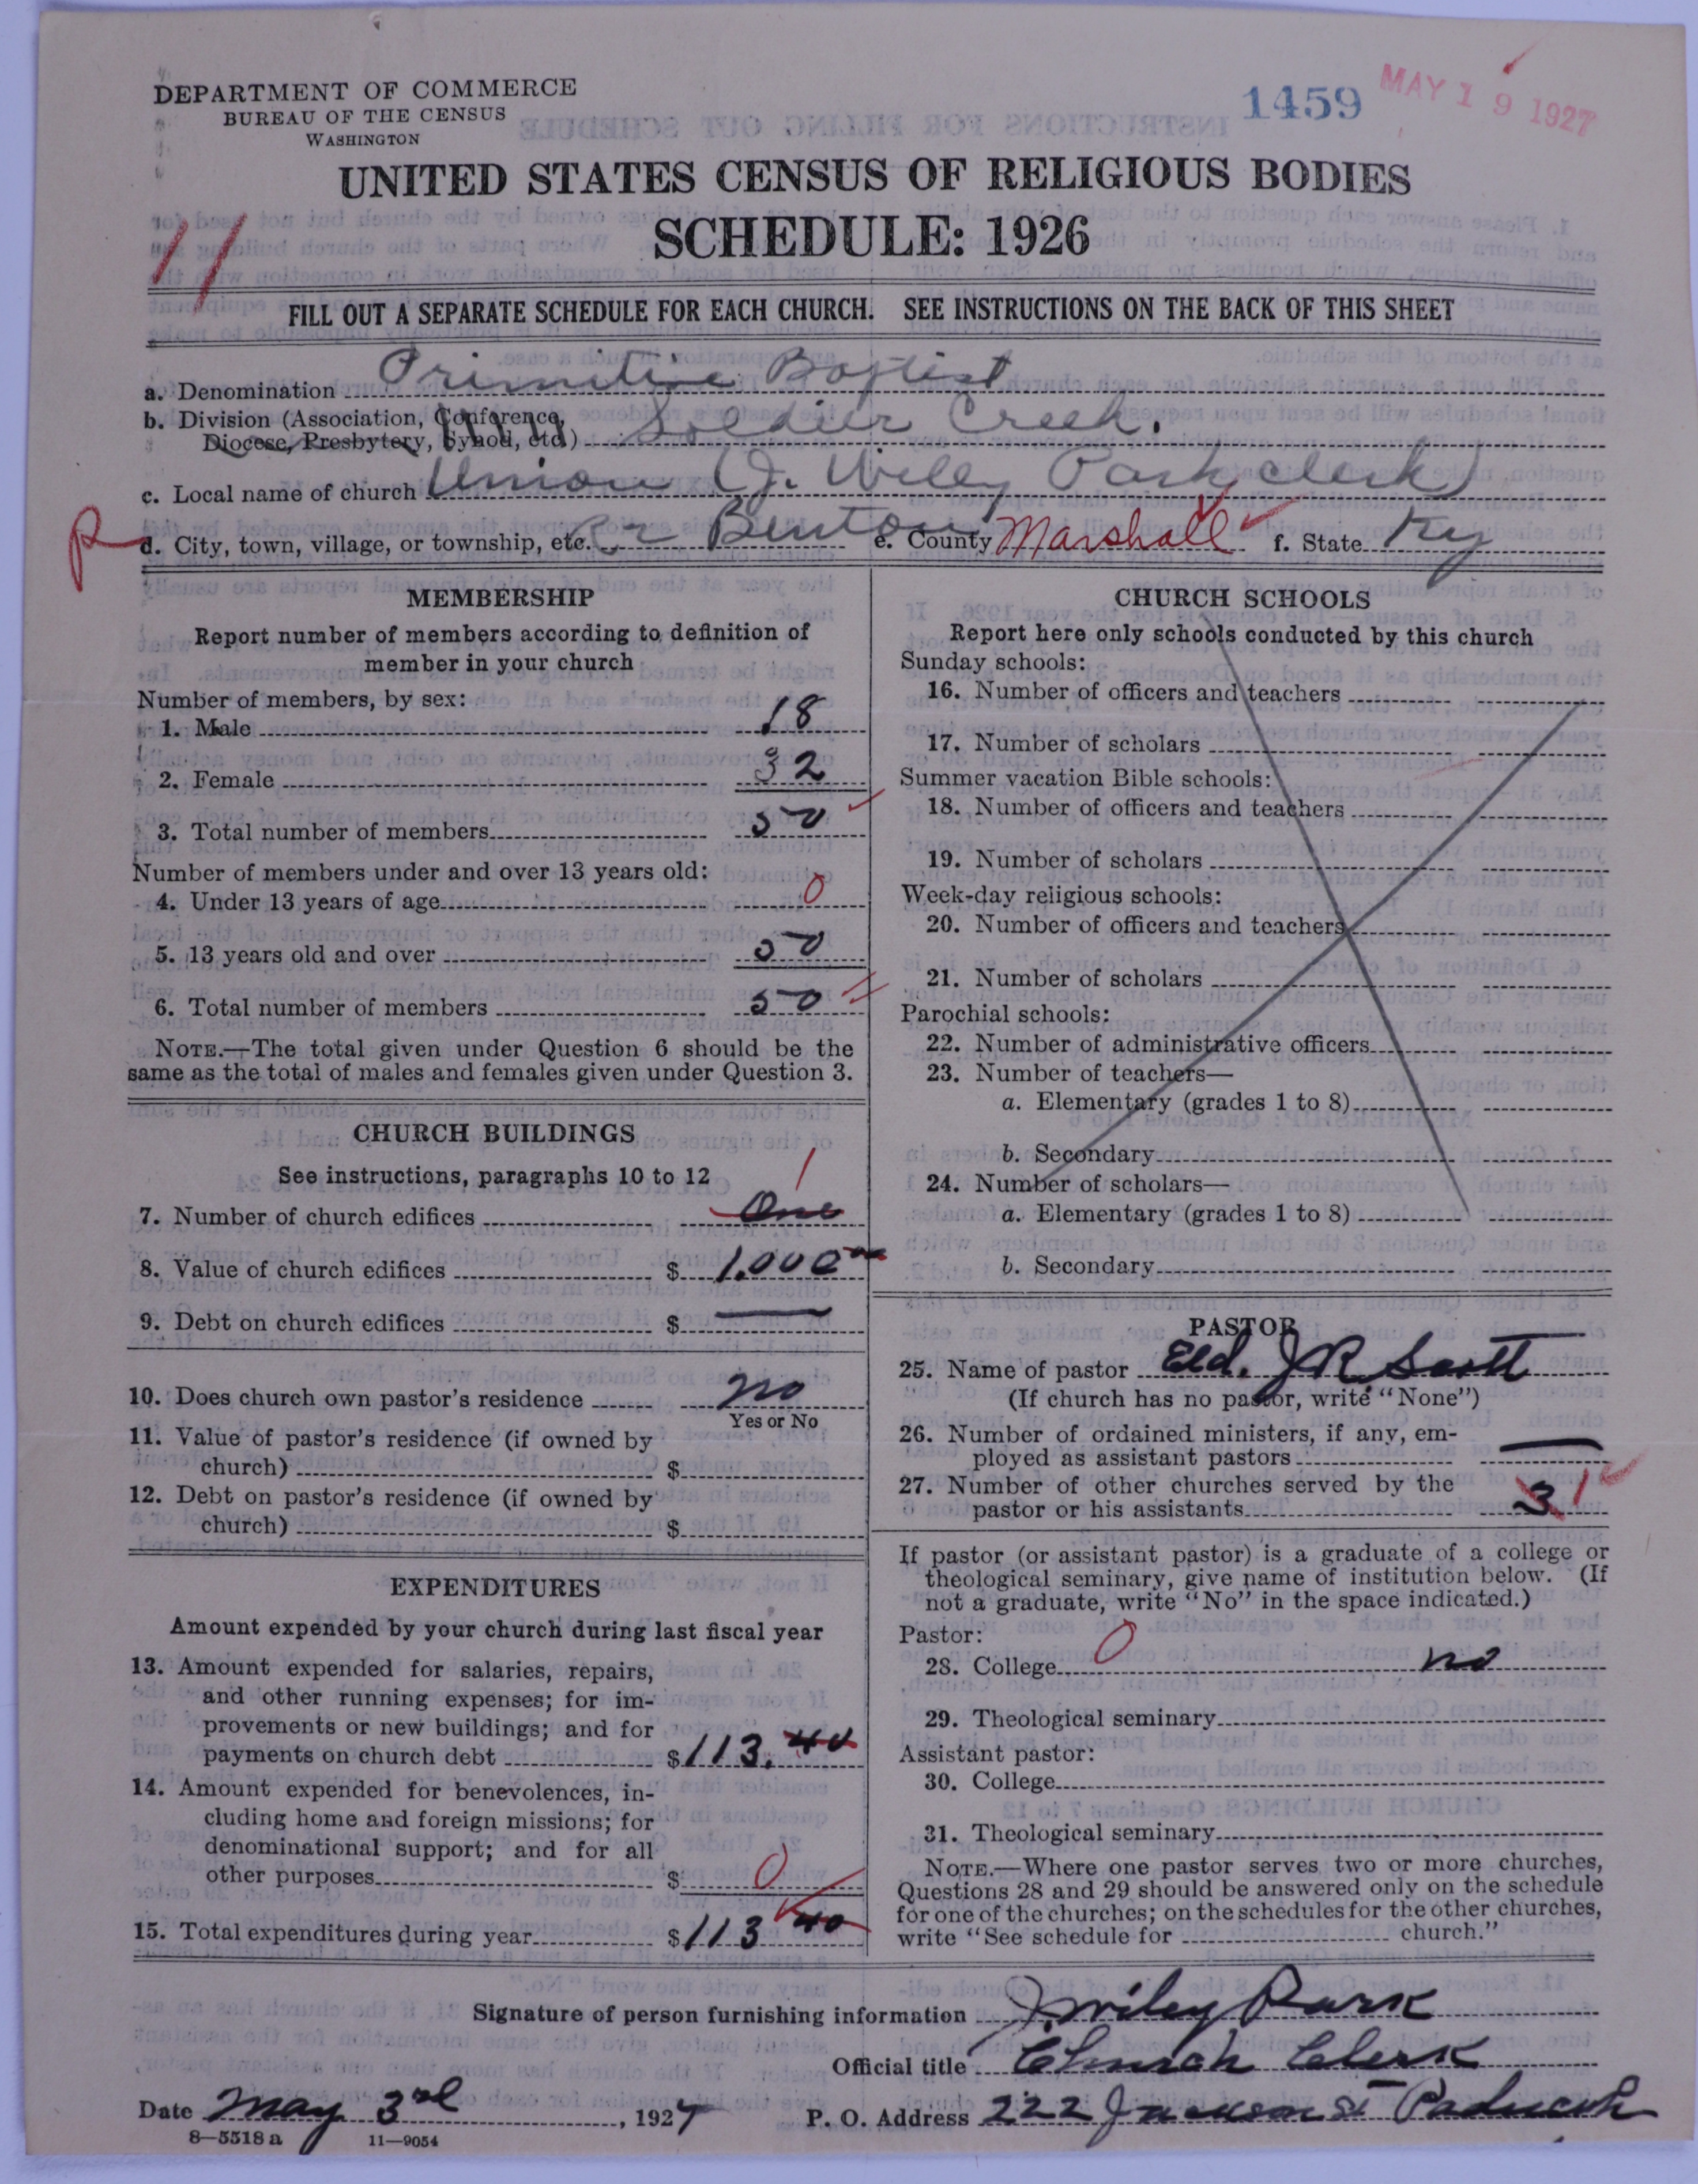 DEPARTMENT OF COMMERCE
BUREAU OF THE CENSUS
WASHINGTON
1459
MAY 19 1927
UNITED STATES CENSUS OF RELIGIOUS BODIES
SCHEDULE: 1926
11
FILL OUT A SEPARATE SCHEDULE FOR EACH CHURCH. SEE INSTRUCTIONS ON THE BACK OF THIS SHEET
a. Denomination Primitive Baptist
b. Division (Association, Conference,
Diocese, Presbytery, Synod, etc.) Soldier Creek.
c. Local name of church Union (J. Wiley Park clerk)
R d. City, town, village, or township, etc. Benton e. County Marshall f. State Ky
MEMBERSHIP
Report number of members according to definition of
member in your church
Number of members, by sex:
1. Male 18
2. Female 32
3. Total number of members 50
Number of members under and over 13 years old:
4. Under 13 years of age 0
5. 13 years old and over 50
6. Total number of members 50
NOTE.—The total given under Question 6 should be the
same as the total of males and females given under Question 3.
CHURCH BUILDINGS
See instructions, paragraphs 10 to 12
7. Number of church edifices One 1
8. Value of church edifices $ 1,000
9. Debt on church edifices $ —
10. Does church own pastor's residence no
Yes or No
11. Value of pastor's residence (if owned by
church) $
12. Debt on pastor's residence (if owned by
church) $
EXPENDITURES
Amount expended by your church during last fiscal year
13. Amount expended for salaries, repairs,
and other running expenses; for im-
provements or new buildings; and for
payments on church debt $ 113.40
14. Amount expended for benevolences, in-
cluding home and foreign missions; for
denominational support; and for all
other purposes $ 0
15. Total expenditures during year $ 113 40
CHURCH SCHOOLS
Report here only schools conducted by this church
Sunday schools:
16. Number of officers and teachers
17. Number of scholars
Summer vacation Bible schools:
18. Number of officers and teachers
19. Number of scholars
Week-day religious schools:
20. Number of officers and teachers
21. Number of scholars
Parochial schools:
22. Number of administrative officers
23. Number of teachers—
a. Elementary (grades 1 to 8)
b. Secondary
24. Number of scholars—
a. Elementary (grades 1 to 8)
b. Secondary
PASTOR
25. Name of pastor Eld. J R. Scott
(If church has no pastor, write "None")
26. Number of ordained ministers, if any, em-
ployed as assistant pastors —
27. Number of other churches served by the
pastor or his assistants 3 1
If pastor (or assistant pastor) is a graduate of a college or
theological seminary, give name of institution below. (If
not a graduate, write "No" in the space indicated.)
Pastor:
28. College 0 no
29. Theological seminary
Assistant pastor:
30. College
31. Theological seminary
NOTE.—Where one pastor serves two or more churches,
Questions 28 and 29 should be answered only on the schedule
for one of the churches; on the schedules for the other churches,
write "See schedule for church."
Signature of person furnishing information J. Wiley Park
Official title Church Clerk
Date May 3rd, 1927 P. O. Address 222 Jackson St Paducah
8—5518 a 11—9054